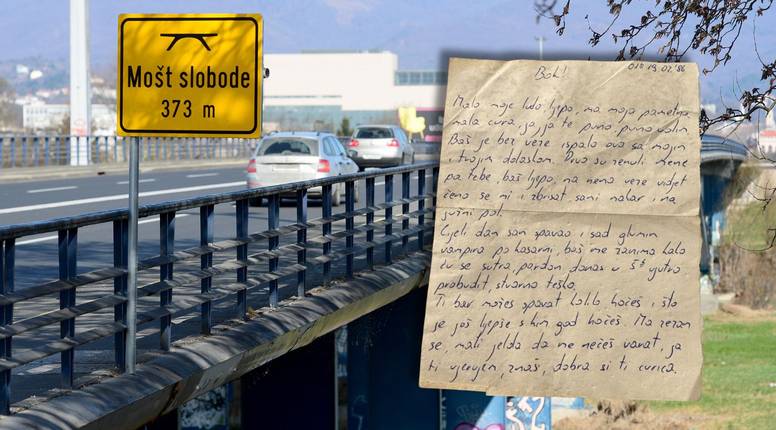 Mošt slobode
373 m
Bok!
019 19.02.'86
Malo moje ludo ljepo, ma moja pametna
mala cura, ja, ja te puno, puno volim.
Baš je bez veze ispalo ovo sa mojim
i tvojim dolaskom. Prvo su zeznuli mene
pa tebe, baš ljepo, na nema veze vidjet
ćemo se mi i zbrisat sami makar i na
južni pol.
Cjeli dan sam spavao i sad glumim
vampira po kasarni, baš me zanima kako
ću se sutra, pardon danas u 5 jutro
probudit, stvarno teško.
Ti bar možeš spavat koliko hoćeš i što
je još ljepše s kim god hoćeš. Ma zezam
se, mali jelda da me nećeš varat, ja
ti vjerujem, znaš, dobra si ti curica.